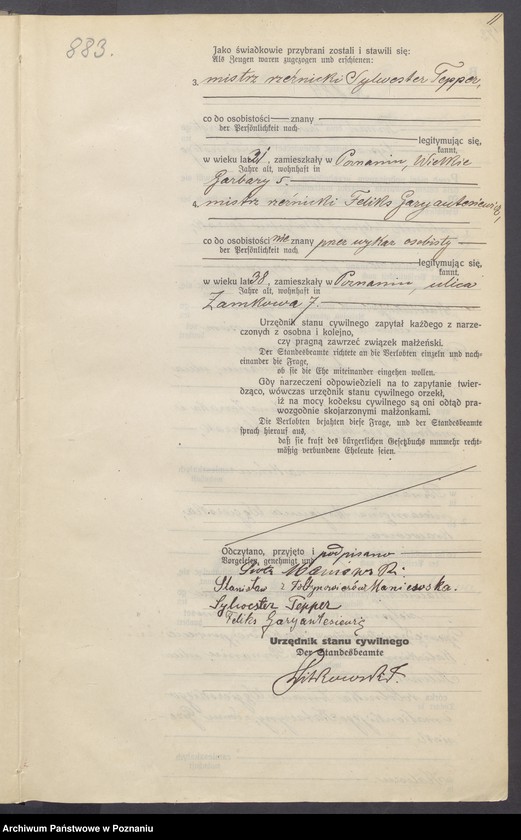 883.
Jako świadkowie przybrani zostali i stawili się:
Als Zeugen waren zugezogen und erschienen:
3. mistrz rzeźnicki Sylwester Tepper,
co do osobistości znany
der Persönlichkeit nach
legitymując się,
kannt,
w wieku lat, zamieszkały w Poznaniu, Wielkie
Jahre alt, wohnhaft in
Garbary 5.
4. mistrz rzeźnicki Feliks Garyantesiewicz,
co do osobistości nie znany przez wykaz osobisty
der Persönlichkeit nach
legitymując się,
kannt,
w wieku lat 38, zamieszkały w Poznaniu, ulica
Jahre alt, wohnhaft in
Zamkowa 7.
Urzędnik stanu cywilnego zapytał każdego z narze-
czonych z osobna i kolejno,
czy pragną zawrzeć związek małżeński.
Der Standesbeamte richtete an die Verlobten einzeln und nach-
einander die Frage,
ob sie die Ehe miteinander eingehen wollen.
Gdy narzeczeni odpowiedzieli na to zapytanie twier-
dząco, wówczas urzędnik stanu cywilnego orzekł,
iż na mocy kodeksu cywilnego są oni odtąd pra-
wozgodnie skojarzonymi małżonkami.
Die Verlobten bejahten diese Frage, und der Standesbeamte
sprach hierauf aus,
daß sie kraft des bürgerlichen Gesetzbuchs nunmehr recht-
mäßig verbundene Eheleute seien.
Odczytano, przyjęto i podpisano
Vorgelesen, genehmigt und
Stanisław z Maniewska.
Sylwester Tepper
Feliks Garyantesiewicz
Urzędnik stanu cywilnego
Der Standesbeamte
Archiwum Państwowe w Poznaniu